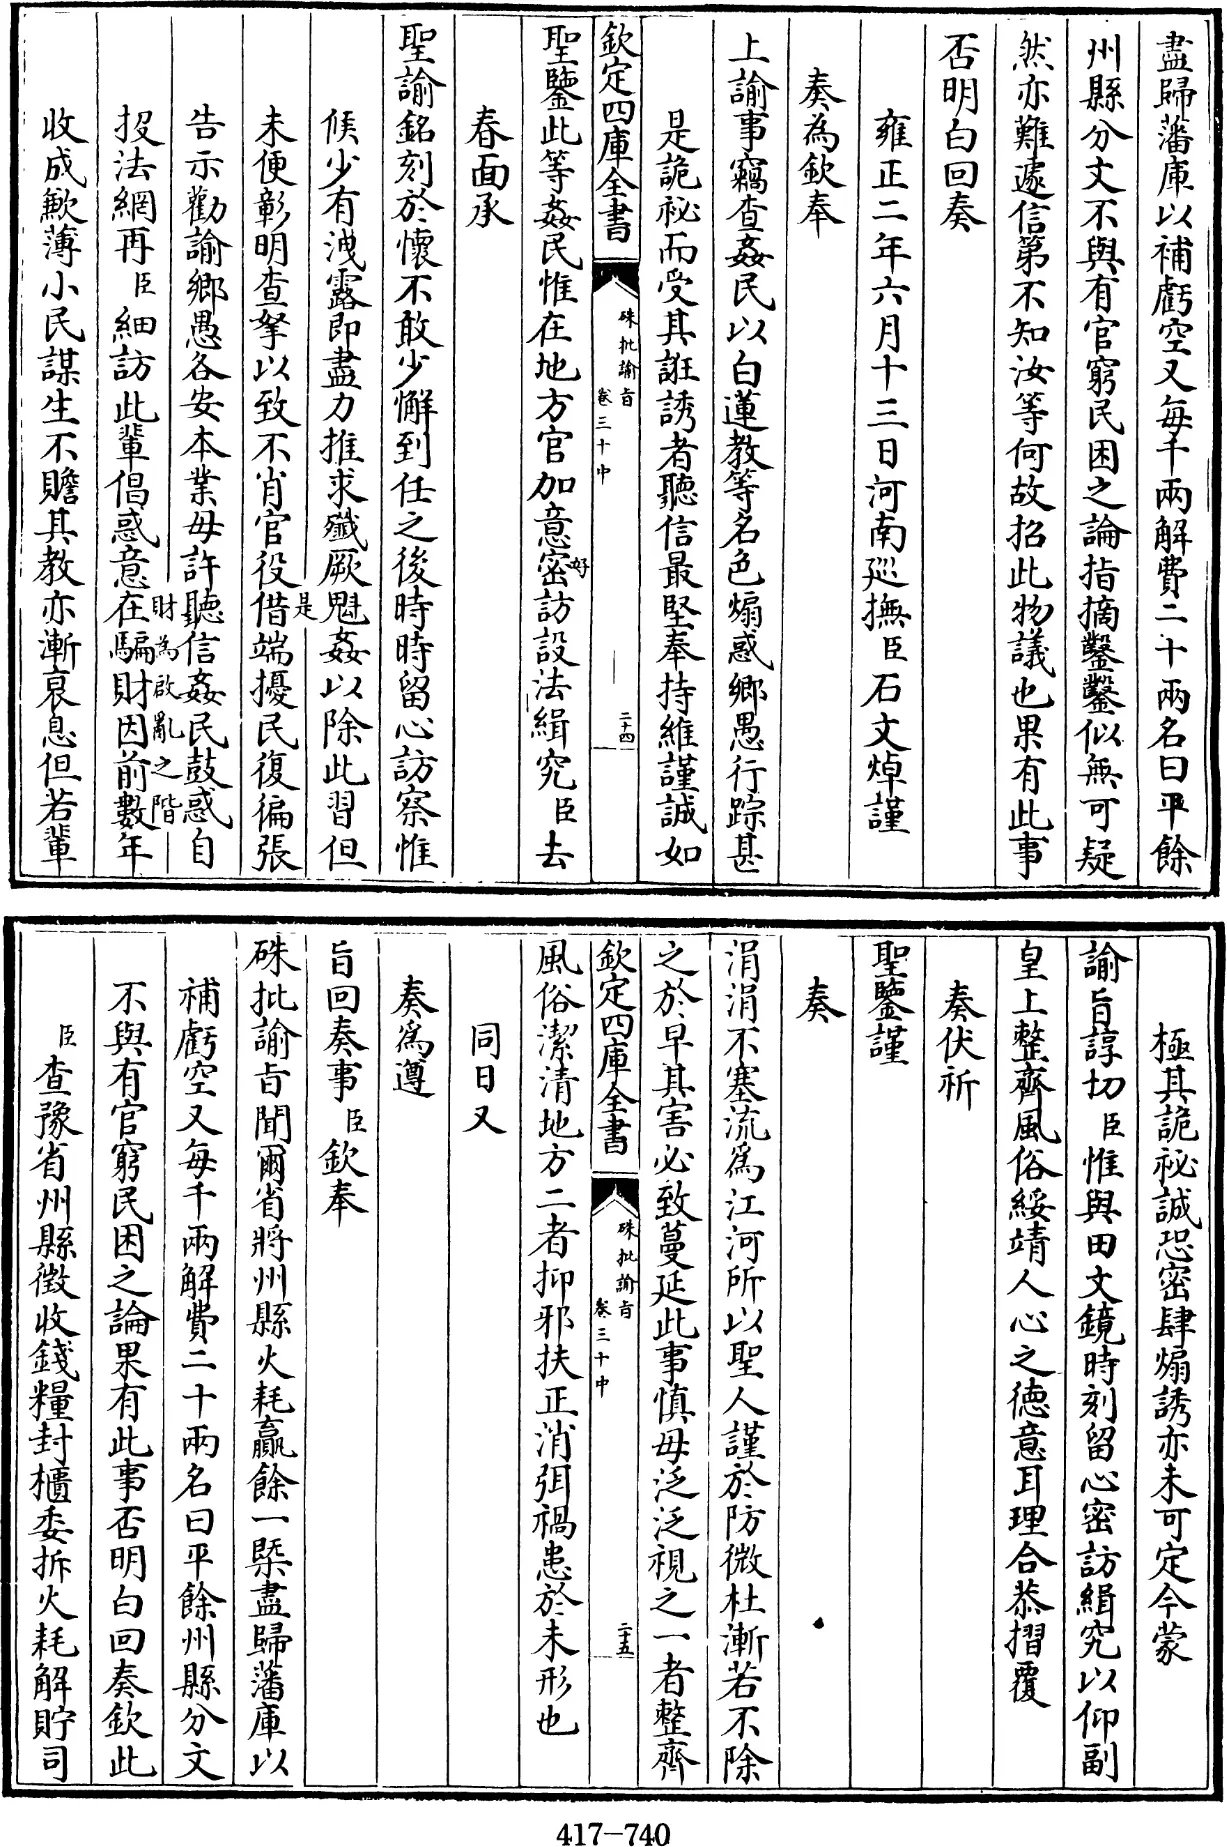 盡歸藩庫以補虧空又每千兩解費二十兩名曰平餘
州縣分文不與有官窮民困之論指摘鑿鑿似無可疑
然亦難遽信第不知汝等何故招此物議也果有此事
否明白回奏
雍正二年六月十三日河南巡撫臣石文焯謹
奏為欽奉
上諭事竊查姦民以白蓮教等名色煽惑鄉愚行踪甚
是詭祕而受其誑誘者聽信最堅奉持維謹誠如
欽定四庫全書
硃批諭旨
卷三十中
二十四
聖鑒此等姦民惟在地方官加意密訪設法緝究臣去
好
春面承
聖諭銘刻於懷不敢少懈到任之後時時留心訪察惟
候少有洩露即盡力推求殲厥魁姦以除此習但
是
未便彰明查拏以致不肖官役借端擾民復徧張
告示勸諭鄉愚各安本業毋許聽信姦民鼓惑自
財為啟亂之階
投法網再臣細訪此輩倡惑意在騙財因前數年
收成歉薄小民謀生不贍其教亦漸衰息但若輩
極其詭祕誠恐密肆煽誘亦未可定今蒙
諭旨諄切臣惟與田文鏡時刻留心密訪緝究以仰副
皇上整齊風俗綏靖人心之德意耳理合恭摺覆
奏伏祈
聖鑒謹
奏
涓涓不塞流為江河所以聖人謹於防微杜漸若不除
之於早其害必致蔓延此事慎毋泛泛視之一者整齊
欽定四庫全書
硃批諭旨
卷三十中
二十五
風俗潔清地方二者抑邪扶正消弭禍患於未形也
同日又
奏為遵
旨回奏事臣欽奉
硃批諭旨聞爾省將州縣火耗贏餘一槩盡歸藩庫以
補虧空又每千兩解費二十兩名曰平餘州縣分文
不與有官窮民困之論果有此事否明白回奏欽此
臣查豫省州縣徵收錢糧封櫃委拆火耗解貯司
417-740